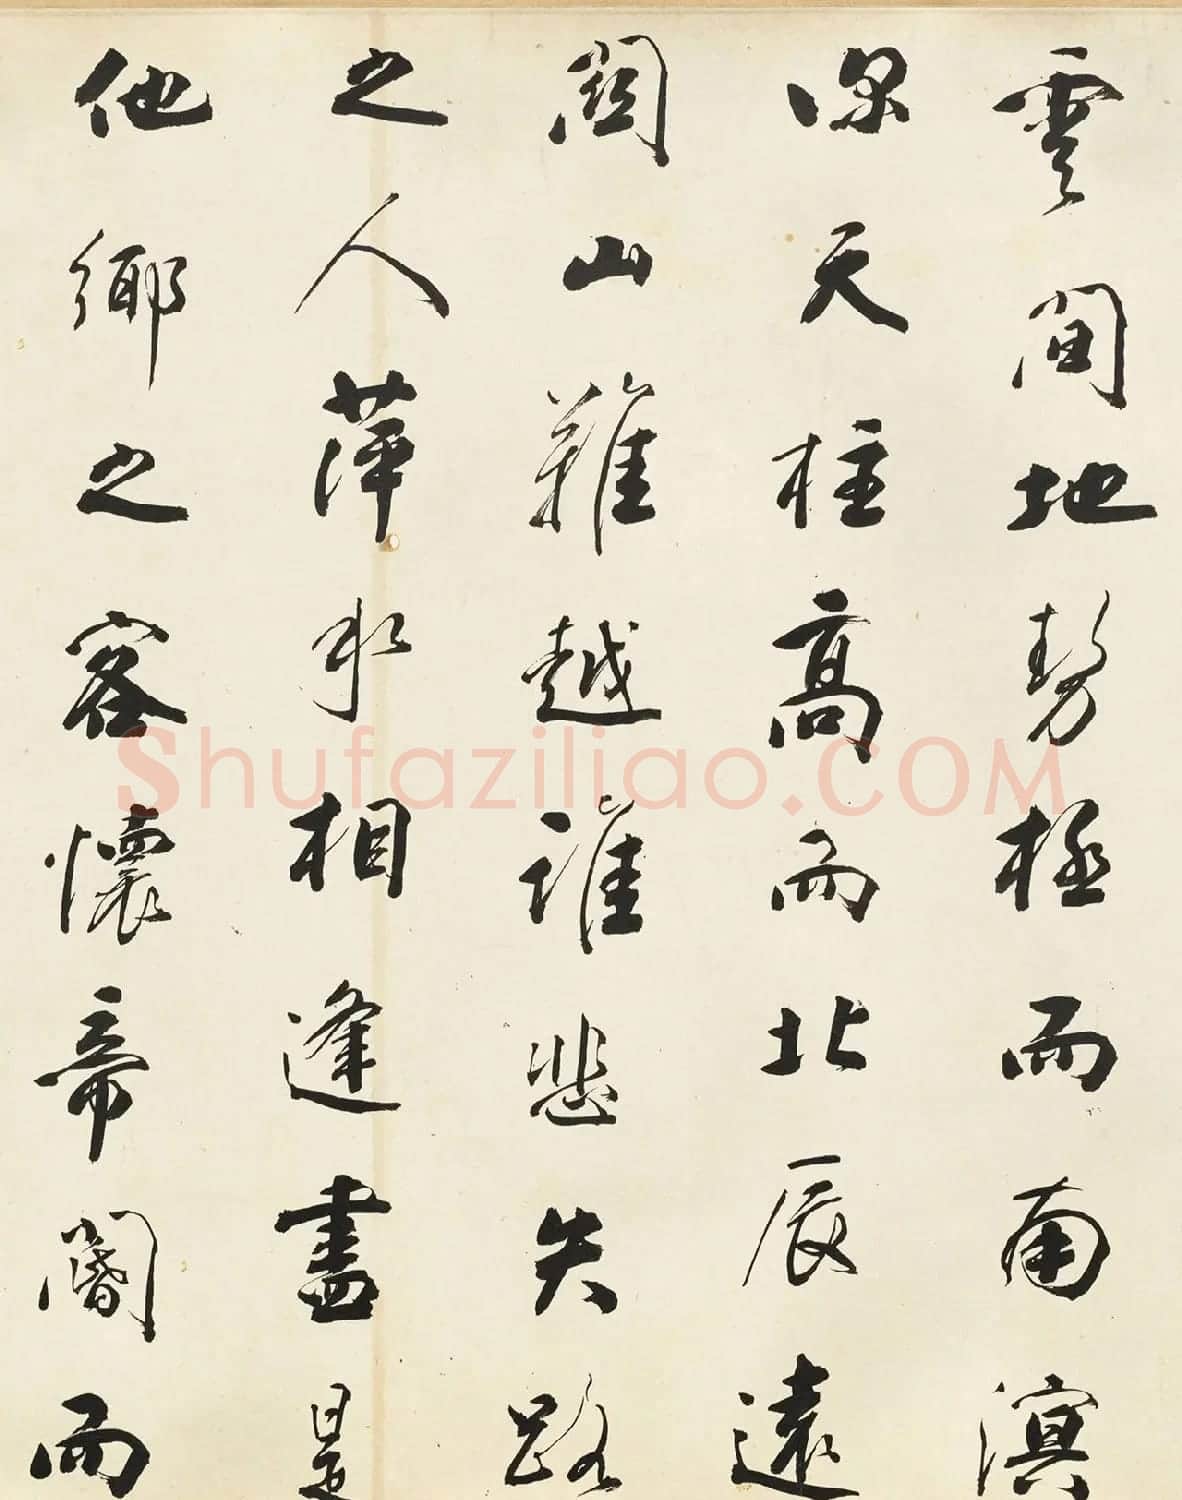 雲間地勢極而南溟
深天柱高而北辰遠
關山難越誰悲失路
之人萍水相逢盡是
他鄉之客懷帝閽而
Shufaziliao.COM